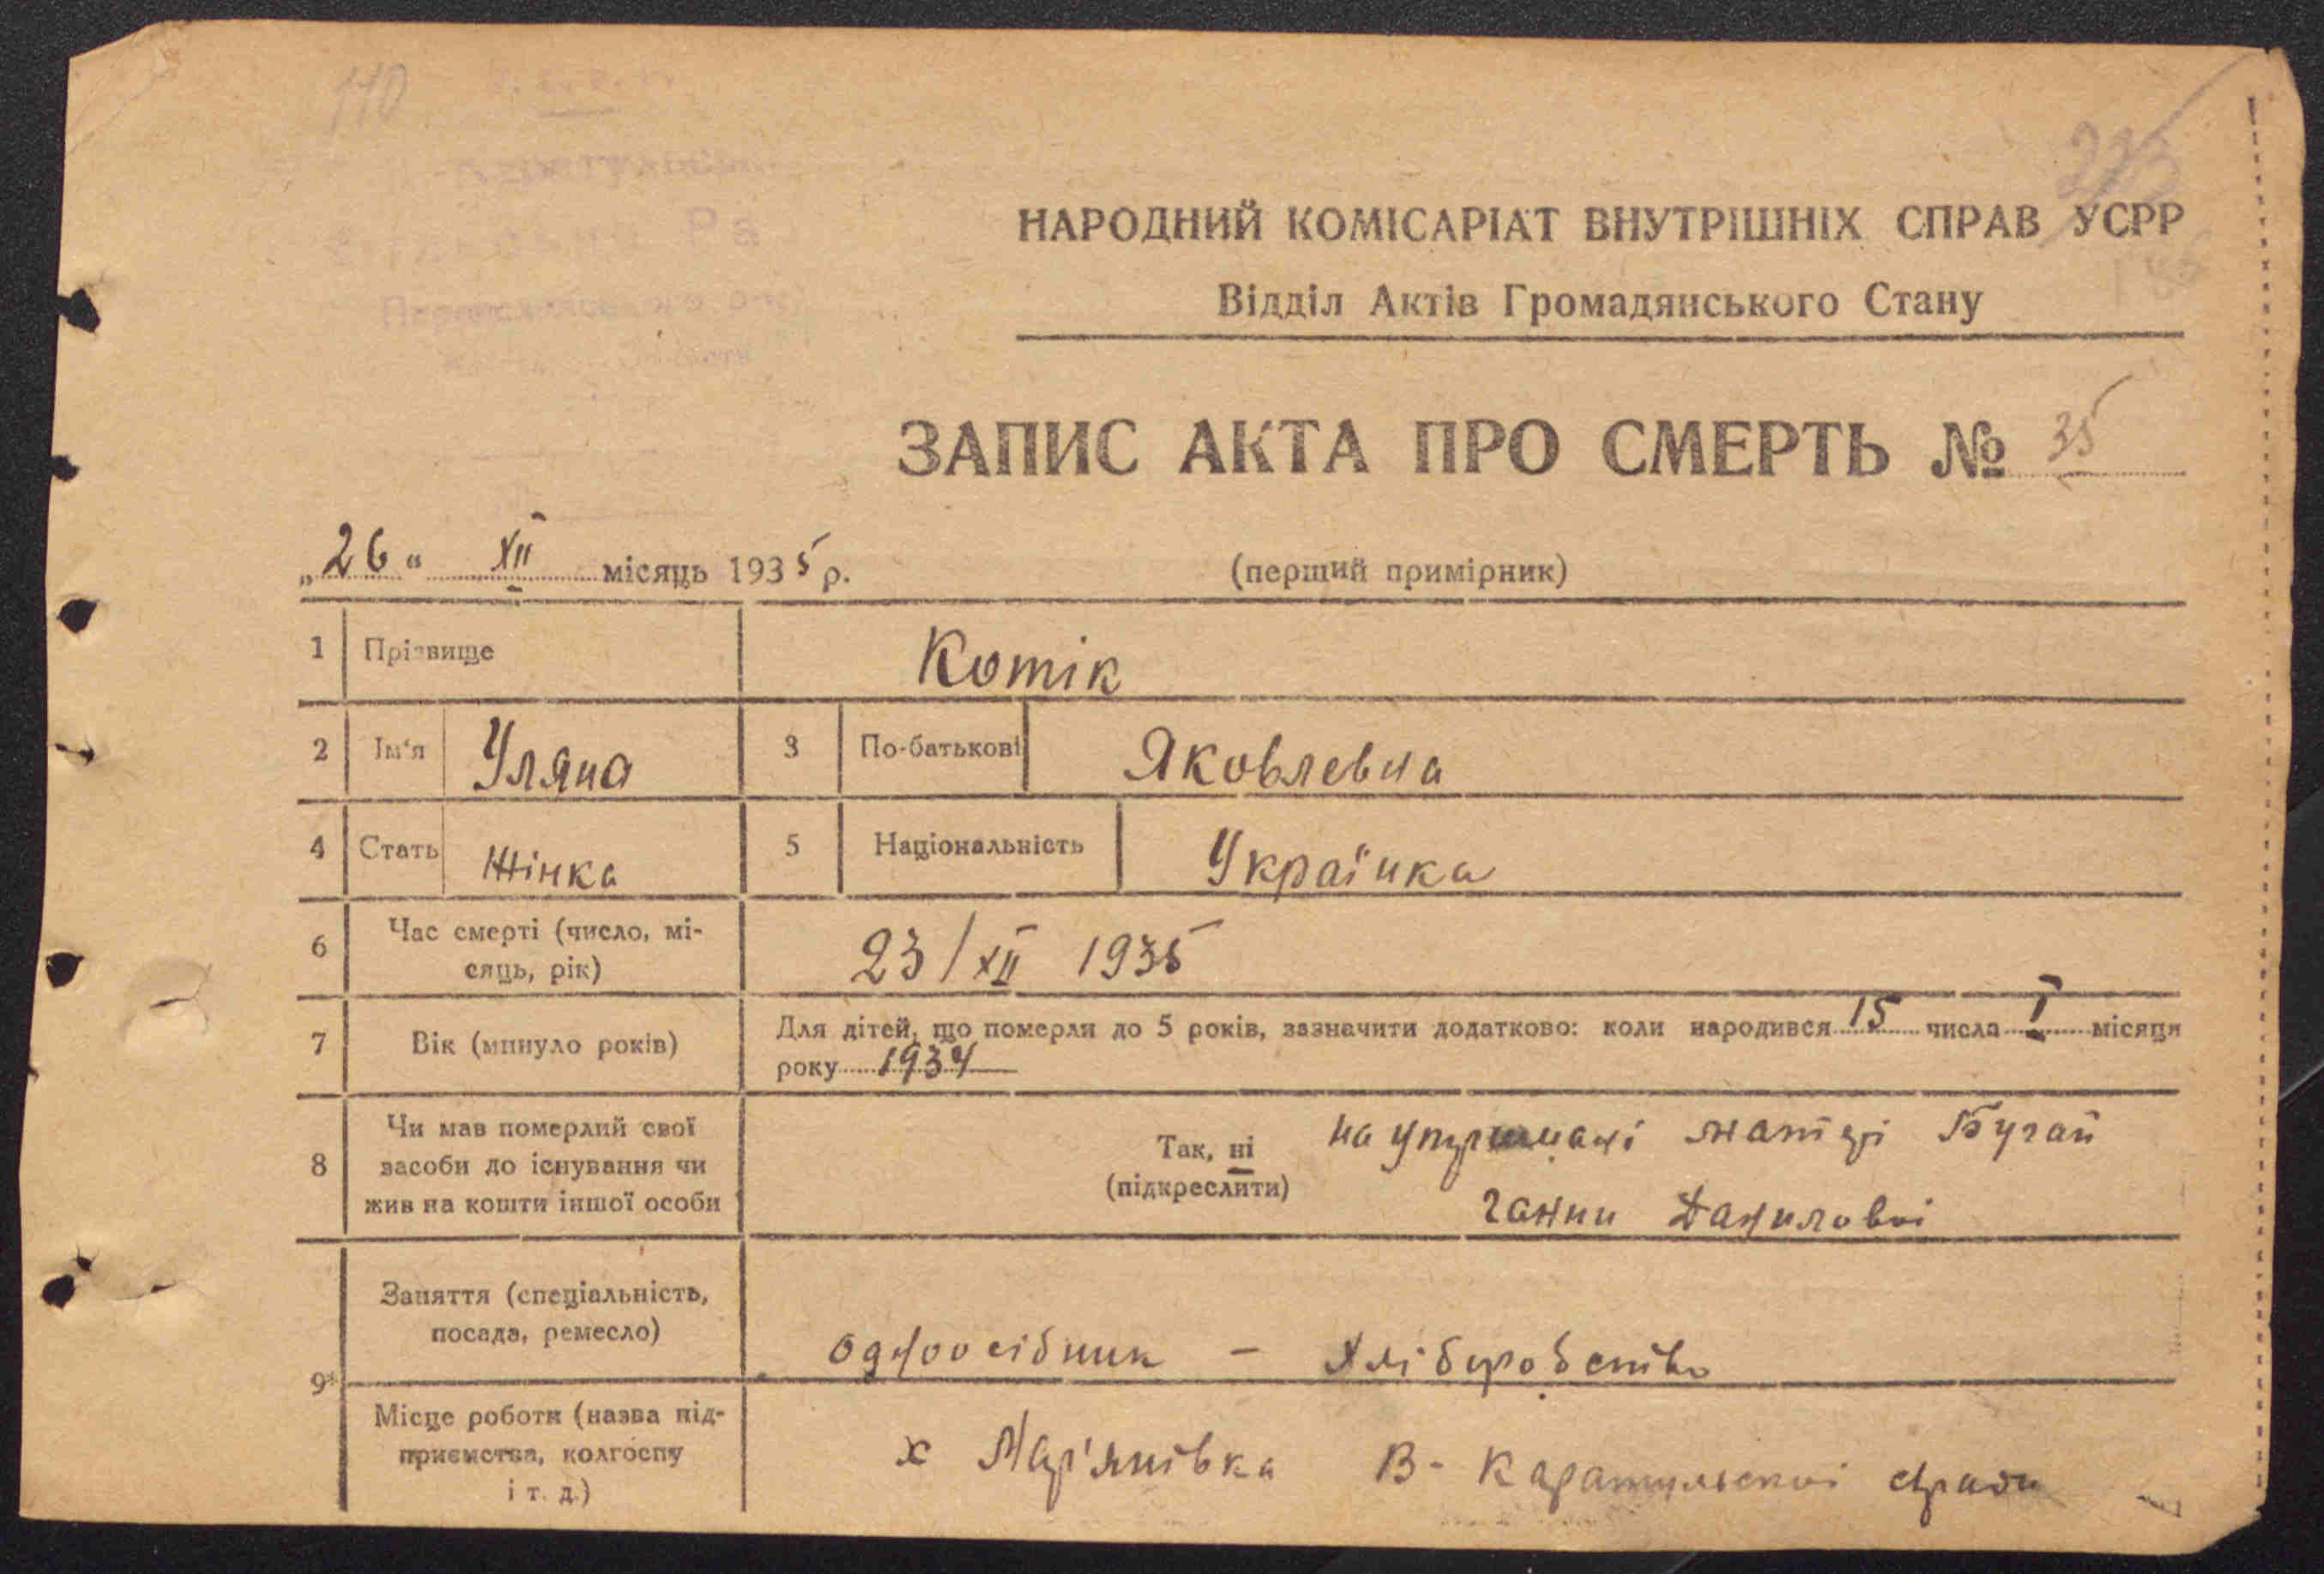 110
223
НАРОДНИЙ КОМІСАРІАТ ВНУТРІШНІХ СПРАВ УСРР
Відділ Актів Громадянського Стану
ЗАПИС АКТА ПРО СМЕРТЬ № 35
„26“ XII місяць 1935 р.
(перший примірник)
1 Прізвище Котік
2 Ім'я Уляна 3 По-батькові Яковлевна
4 Стать Жінка 5 Національність Українка
6 Час смерті (число, мі-
сяць, рік) 23/XII 1935
7 Вік (минуло років) Для дітей, що померли до 5 років, зазначити додатково: коли народився 15 числа I місяця
року 1934
8 Чи мав померлий свої
засоби до існування чи
жив на кошти іншої особи
Так, ні
(підкреслити)
на утриманні матері Бугай
Ганни Даниловні
9* Заняття (спеціальність,
посада, ремесло) одноосібник - хліборобство
Місце роботи (назва під-
приємства, колгоспу
і т. д.) х Мар'янівка В-Каратульскої с/ради